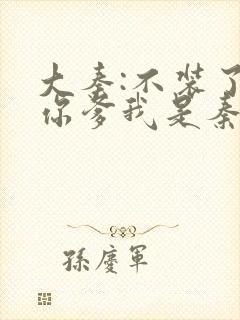 大秦:不装了
你爹我是秦
孫慶軍